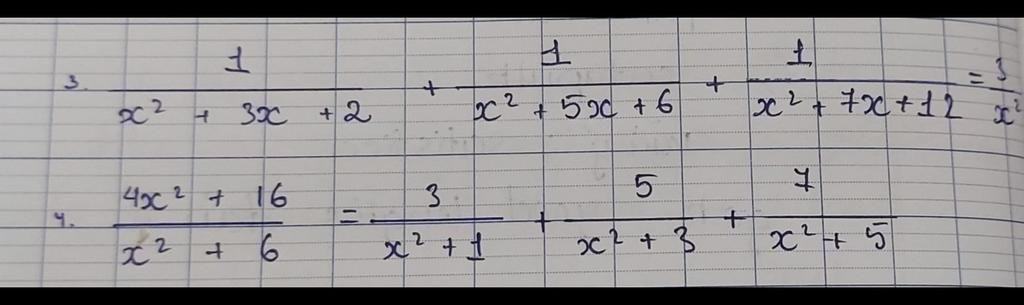 3. 1/(x² + 3x + 2) + 1/(x² + 5x + 6) + 1/(x² + 7x + 12) = 3/x²
4. (4x² + 16)/(x² + 6) = 3/(x² + 1) + 5/(x² + 3) + 7/(x² + 5)